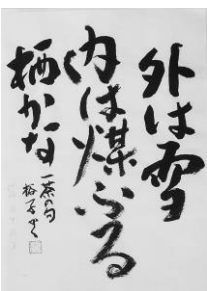 外は雪
内は煤ふる
栖かな
一茶の句